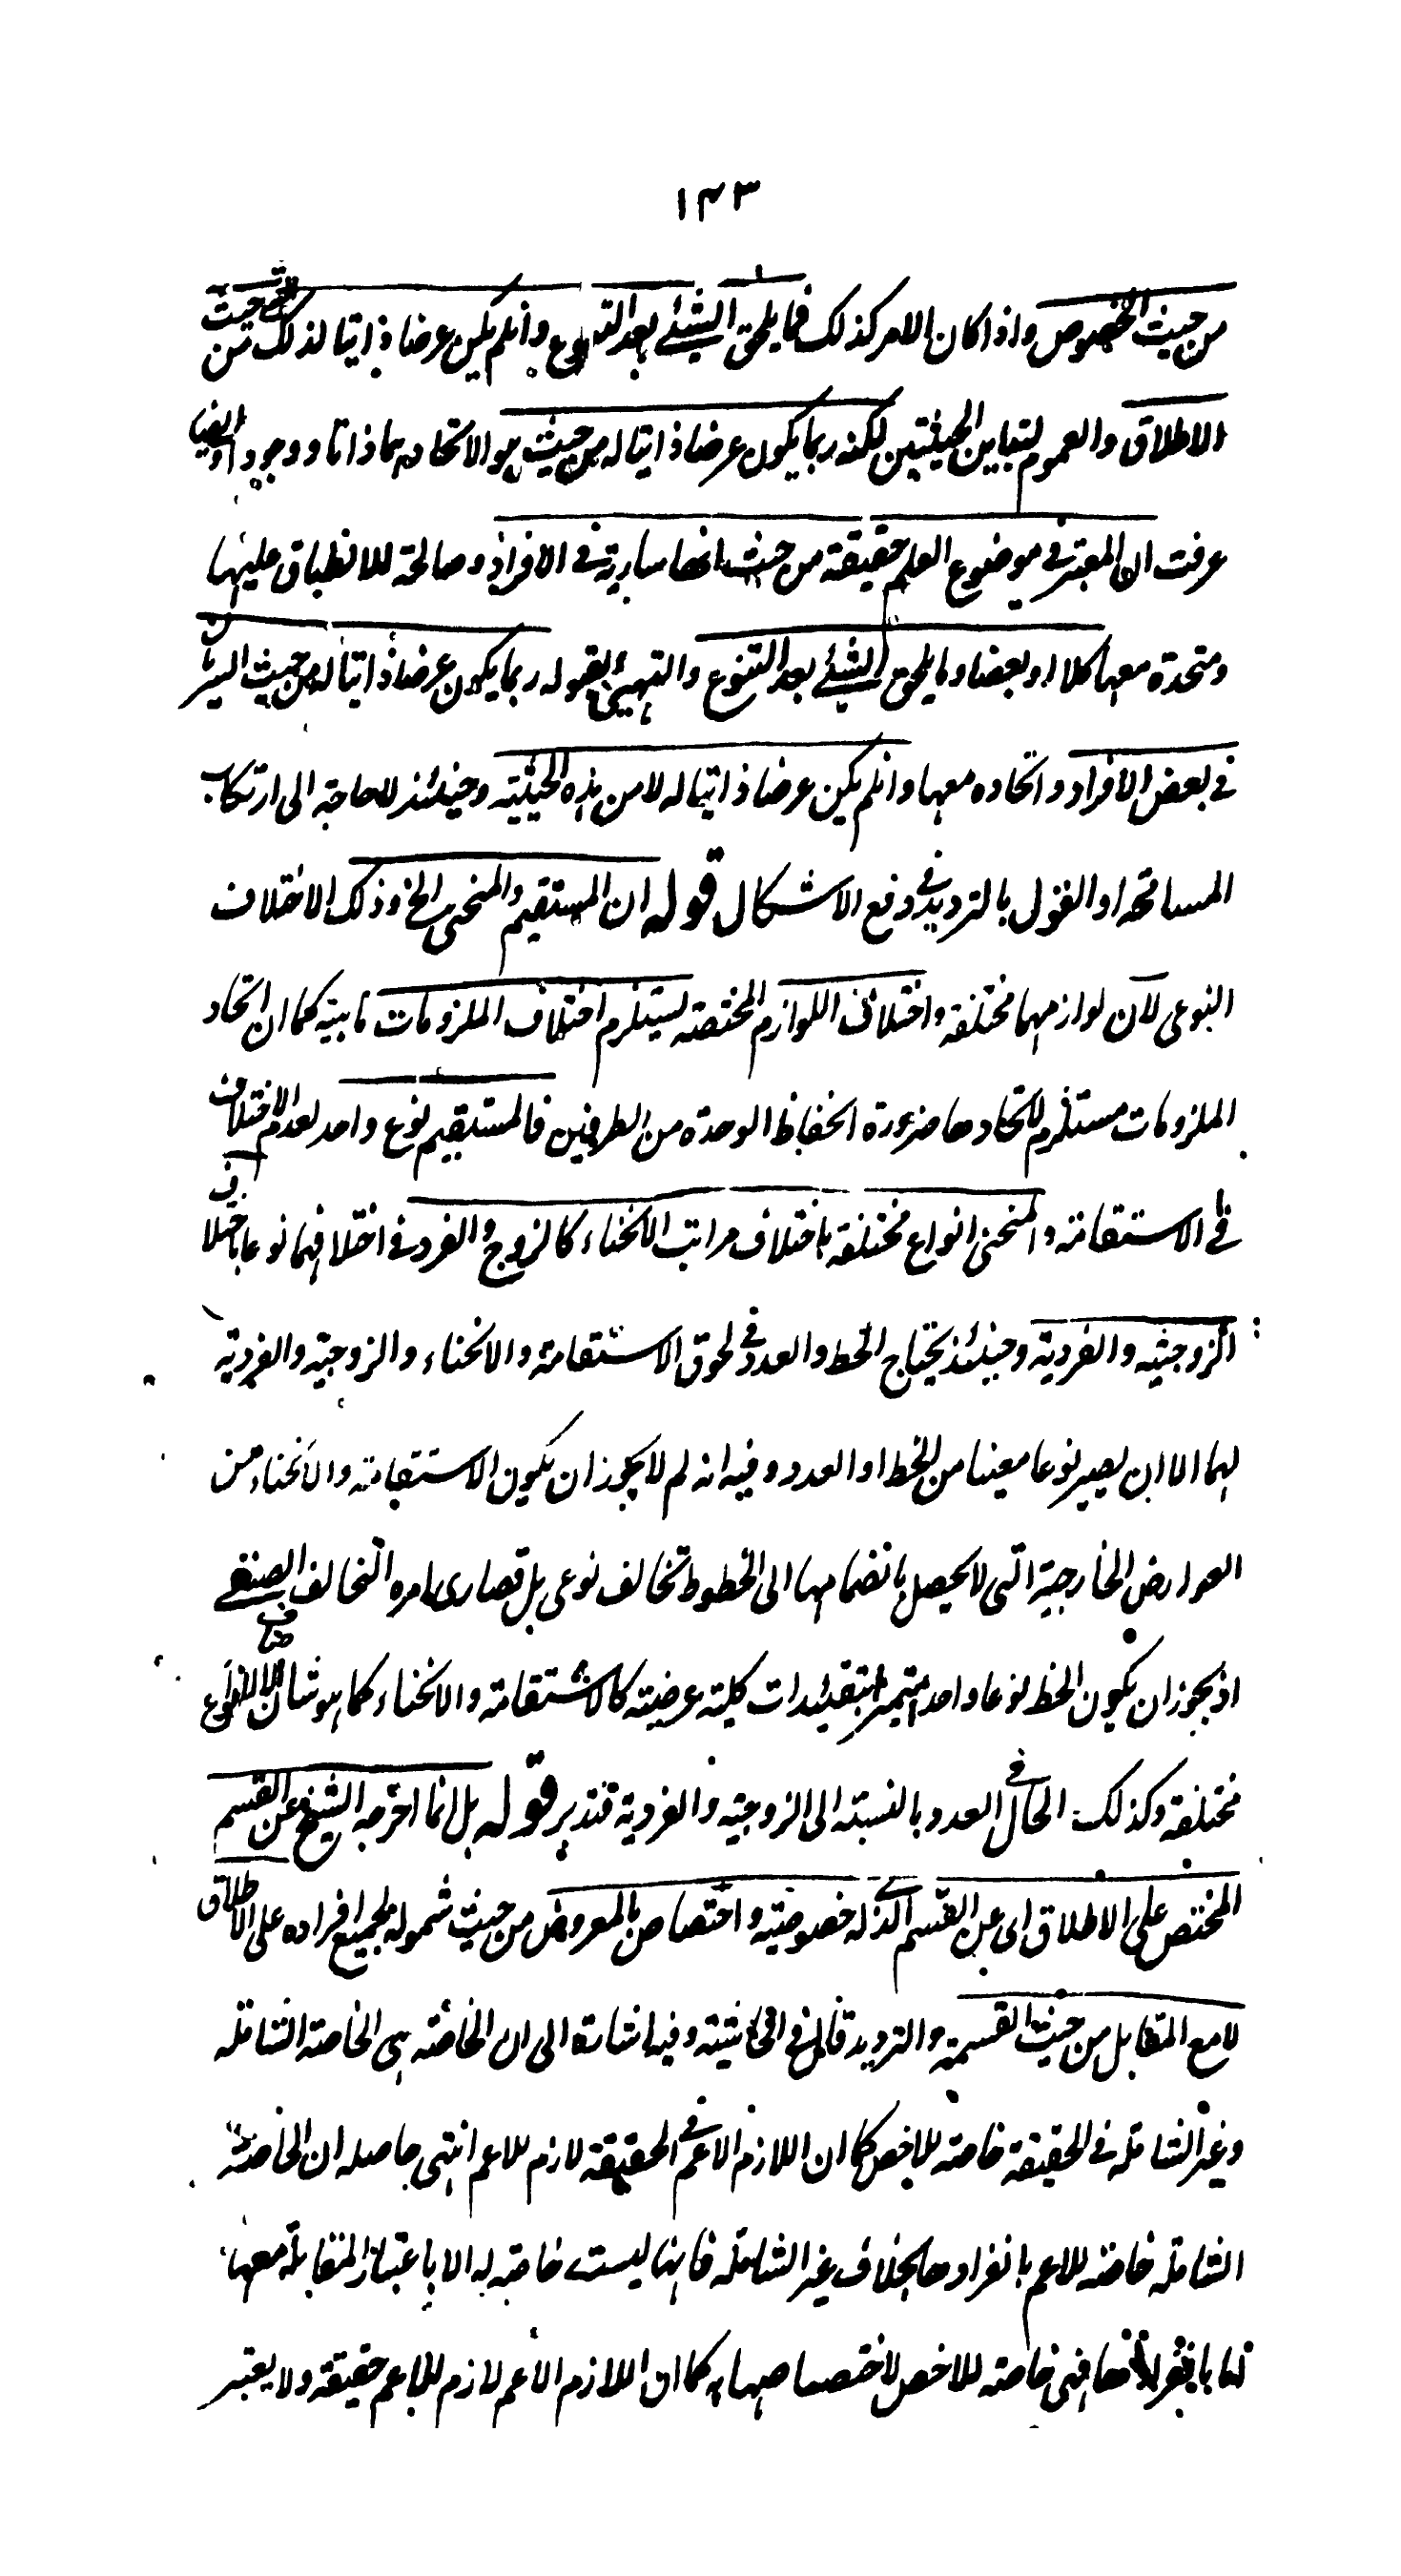 ١٤٣
من حيث الخصوص واذا كان الامر كذلك فما يلحق الشيئ بعد التنوع وانلم يكن عرضا ذاتيا لذلك الشئ من حيث
الاطلاق والعموم لتباين الحيثيتين لكنه ربما يكون عرضا ذاتيا له من حيث هو الاتحادهما ذاتا ووجودا وايضا
عرفت ان المعتبر في موضوع العلم حقيقة من حيث انها سارية في الافراد وصالحة للانطباق عليها
ومتحدة معها كلا او بعضا وما يلحق الشيئ بعد التنوع والتهيئ بقبوله ربما يكون عرضا ذاتيا له من حيث السريان
في بعض الافراد واتحاده معها وانلم يكن عرضا ذاتيا له لا من هذه الحيثية وحينئذ لا حاجة الى ارتكاب
المسامحة او القول بالترديد في دفع الاشكال قوله ان المستقيم والمنحني الخ وذلك الاختلاف
النوعي لان لوازمهما مختلفة واختلاف اللوازم المختصة يستلزم اختلاف الملزومات مابيته كما ان اتحاد
الملزومات مستلزم لاتحادها ضرورة انحفاظ الوحدة من الطرفين فالمستقيم نوع واحد لعدم الاختلاف
في الاستقامة والمنحني انواع مختلفة باختلاف مراتب الانحناء كالزوج والفرد في اختلافهما نوعا باختلاف
الزوجية والفردية وحينئذ يحتاج الخط والعدد في لحوق الاستقامة والانحناء والزوجية والفردية
لهما الا ان يصير نوعا معينا من الخط او العدد وفيه انه لم لا يجوز ان يكون الاستقامة والانحناء من
العوارض الخارجية التي لا يحصل بانضمامها الى الخطوط تخالف نوعي بل قصارى امره التخالف الصنفي
اذ يجوز ان يكون الخط نوعا واحدا متميزا بتقييدات كلية عرضية كالاستقامة والانحناء كما هو شان الانواع
مختلفة وكذلك الحال في العدد بالنسبة الى الزوجية والفردية فتدبر قوله بل انما اخرجه الشيخ عن القسم
المختص على الاطلاق اى عن القسم الذي له خصوصية واختصاص بالمعروض من حيث شموله لجميع افراده على الاطلاق
لا مع المقابل من حيث القسمة والترديد قال في الحاشية وفيه اشارة الى ان الخاصة هي الخاصة الشاملة
وغير الشاملة في الحقيقة خاصة للاخص كما ان اللازم الاعم في الحقيقة لازم للاعم انتهى حاصله ان الخاصة
الشاملة خاصة للاعم بانفرادها بخلاف غير الشاملة فانها ليست خاصة له الا باعتبار المقابلة معها
فهي خاصة للاخص لاختصاصها به كما ان اللازم الاعم لازم للاعم حقيقة ولا يعتبر